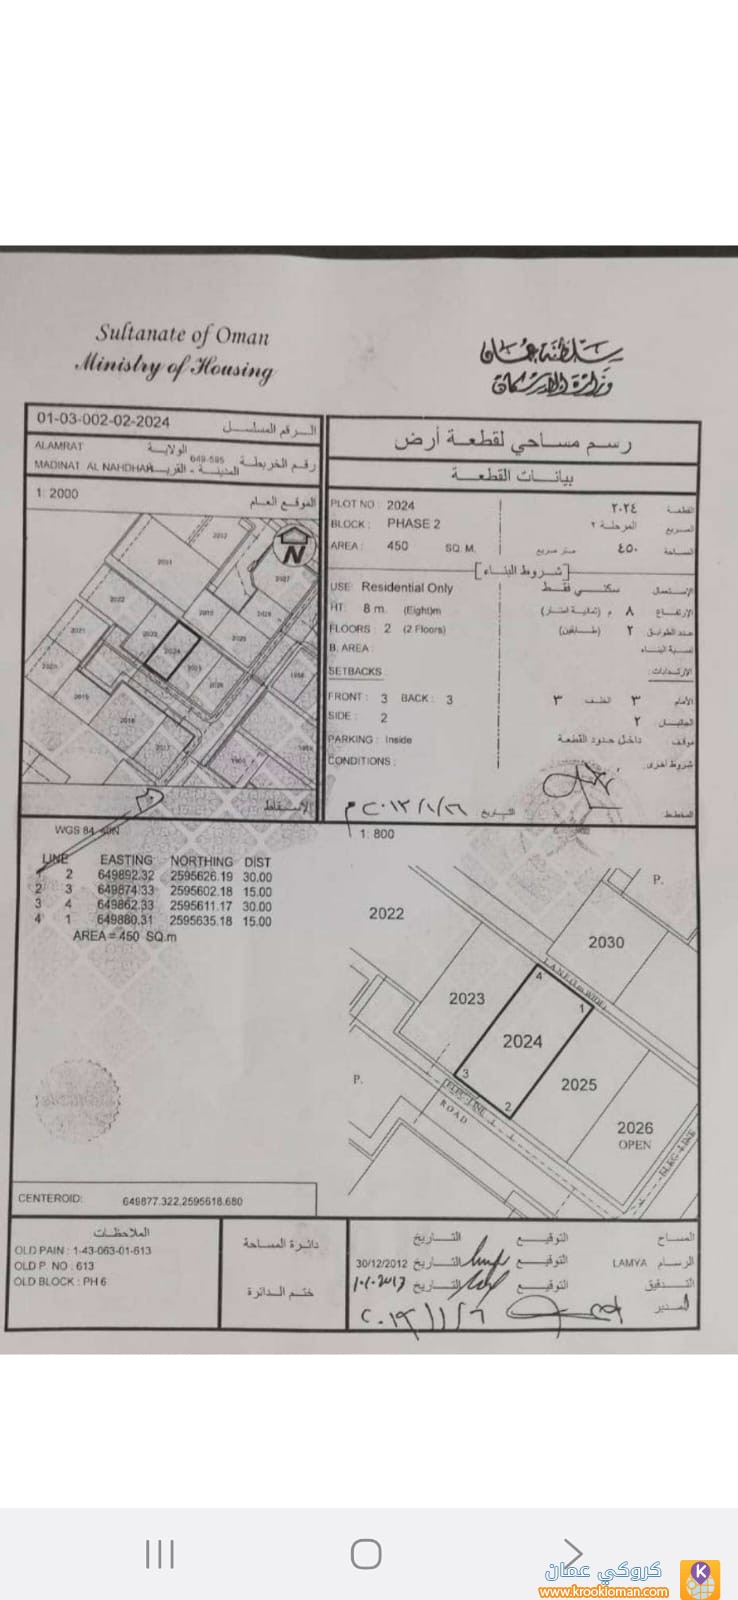 Sultanate of Oman
Ministry of Housing
سلطنة عمان
وزارة الإسكان
01-03-002-02-2024
الرقم المسلسل
ALAMRAT
الولاية
MADINAT AL NAHDHAH
المدينة - القرية
649-595
رقم الخريطة
1: 2000
الموقع العام
N
رسم مساحي لقطعة أرض
بيانات القطعة
PLOT NO : 2024
٢٠٢٤
القطعة
BLOCK : PHASE 2
المرحلة ٢
المربع
AREA : 450 SQ. M.
متر مربع
٤٥٠
المساحة
[شروط البناء]
USE: Residential Only
سكني فقط
الإستعمال
HT: 8 m. (Eight)m
٨ م (ثمانية امتار)
الإرتفاع
FLOORS : 2 (2 Floors)
٢ (طابقين)
عدد الطوابق
B. AREA :
نسبة البناء
SETBACKS
الإرتدادات:
FRONT : 3 BACK : 3
الأمام ٣ الخلف ٣
SIDE : 2
٢
PARKING : Inside
داخل حدود القطعة
موقف
CONDITIONS :
شروط اخرى
المخطط
التاريخ
WGS 84
1: 800
LINE EASTING NORTHING DIST
2 649892.32 2595626.19 30.00
2 3 649874.33 2595602.18 15.00
3 4 649862.33 2595611.17 30.00
4 1 649880.31 2595635.18 15.00
AREA = 450 SQ.m
P.
2022
2030
LANE
4
1
2023
2024
3
2
2025
P.
ELEC-LINE
ROAD
2026
OPEN
CENTEROID: 649877.322,2595618.680
الملاحظات
OLD PAIN : 1-43-063-01-613
OLD P. NO : 613
OLD BLOCK : PH 6
دائرة المساحة
ختم الدائرة
المساح التوقيع التاريخ
الرسام LAMYA التوقيع التاريخ 30/12/2012
التدقيق التوقيع التاريخ
المدير
كروكي عمان
www.krookloman.com